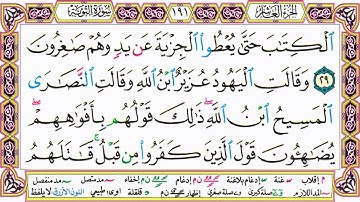 الجزء العاشر ١٩١ سورة التوبة
الْكِتٰبَ حَتّٰى يُعْطُوا الْجِزْيَةَ عَنْ يَدٍ وَهُمْ صٰغِرُونَ
٢٩ وَقَالَتِ الْيَهُودُ عُزَيْرُ ۨابْنُ اللّٰهِ وَقَالَتِ النَّصَارَى
الْمَسِيحُ ابْنُ اللّٰهِ ذٰلِكَ قَوْلُهُمْ بِأَفْوَاهِهِمْ
يُضَاهِـُٔونَ قَوْلَ الَّذِينَ كَفَرُوا مِنْ قَبْلُ قَاتَلَهُمُ